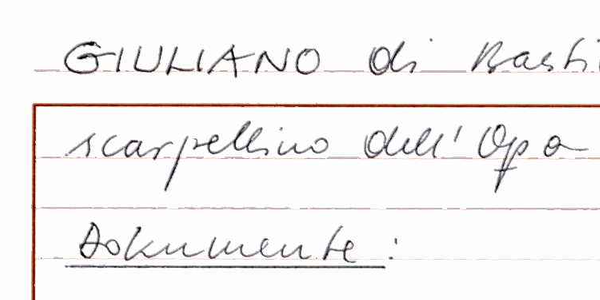 GIULIANO di Basti
scarpellino dell' Opa
Dokumente: